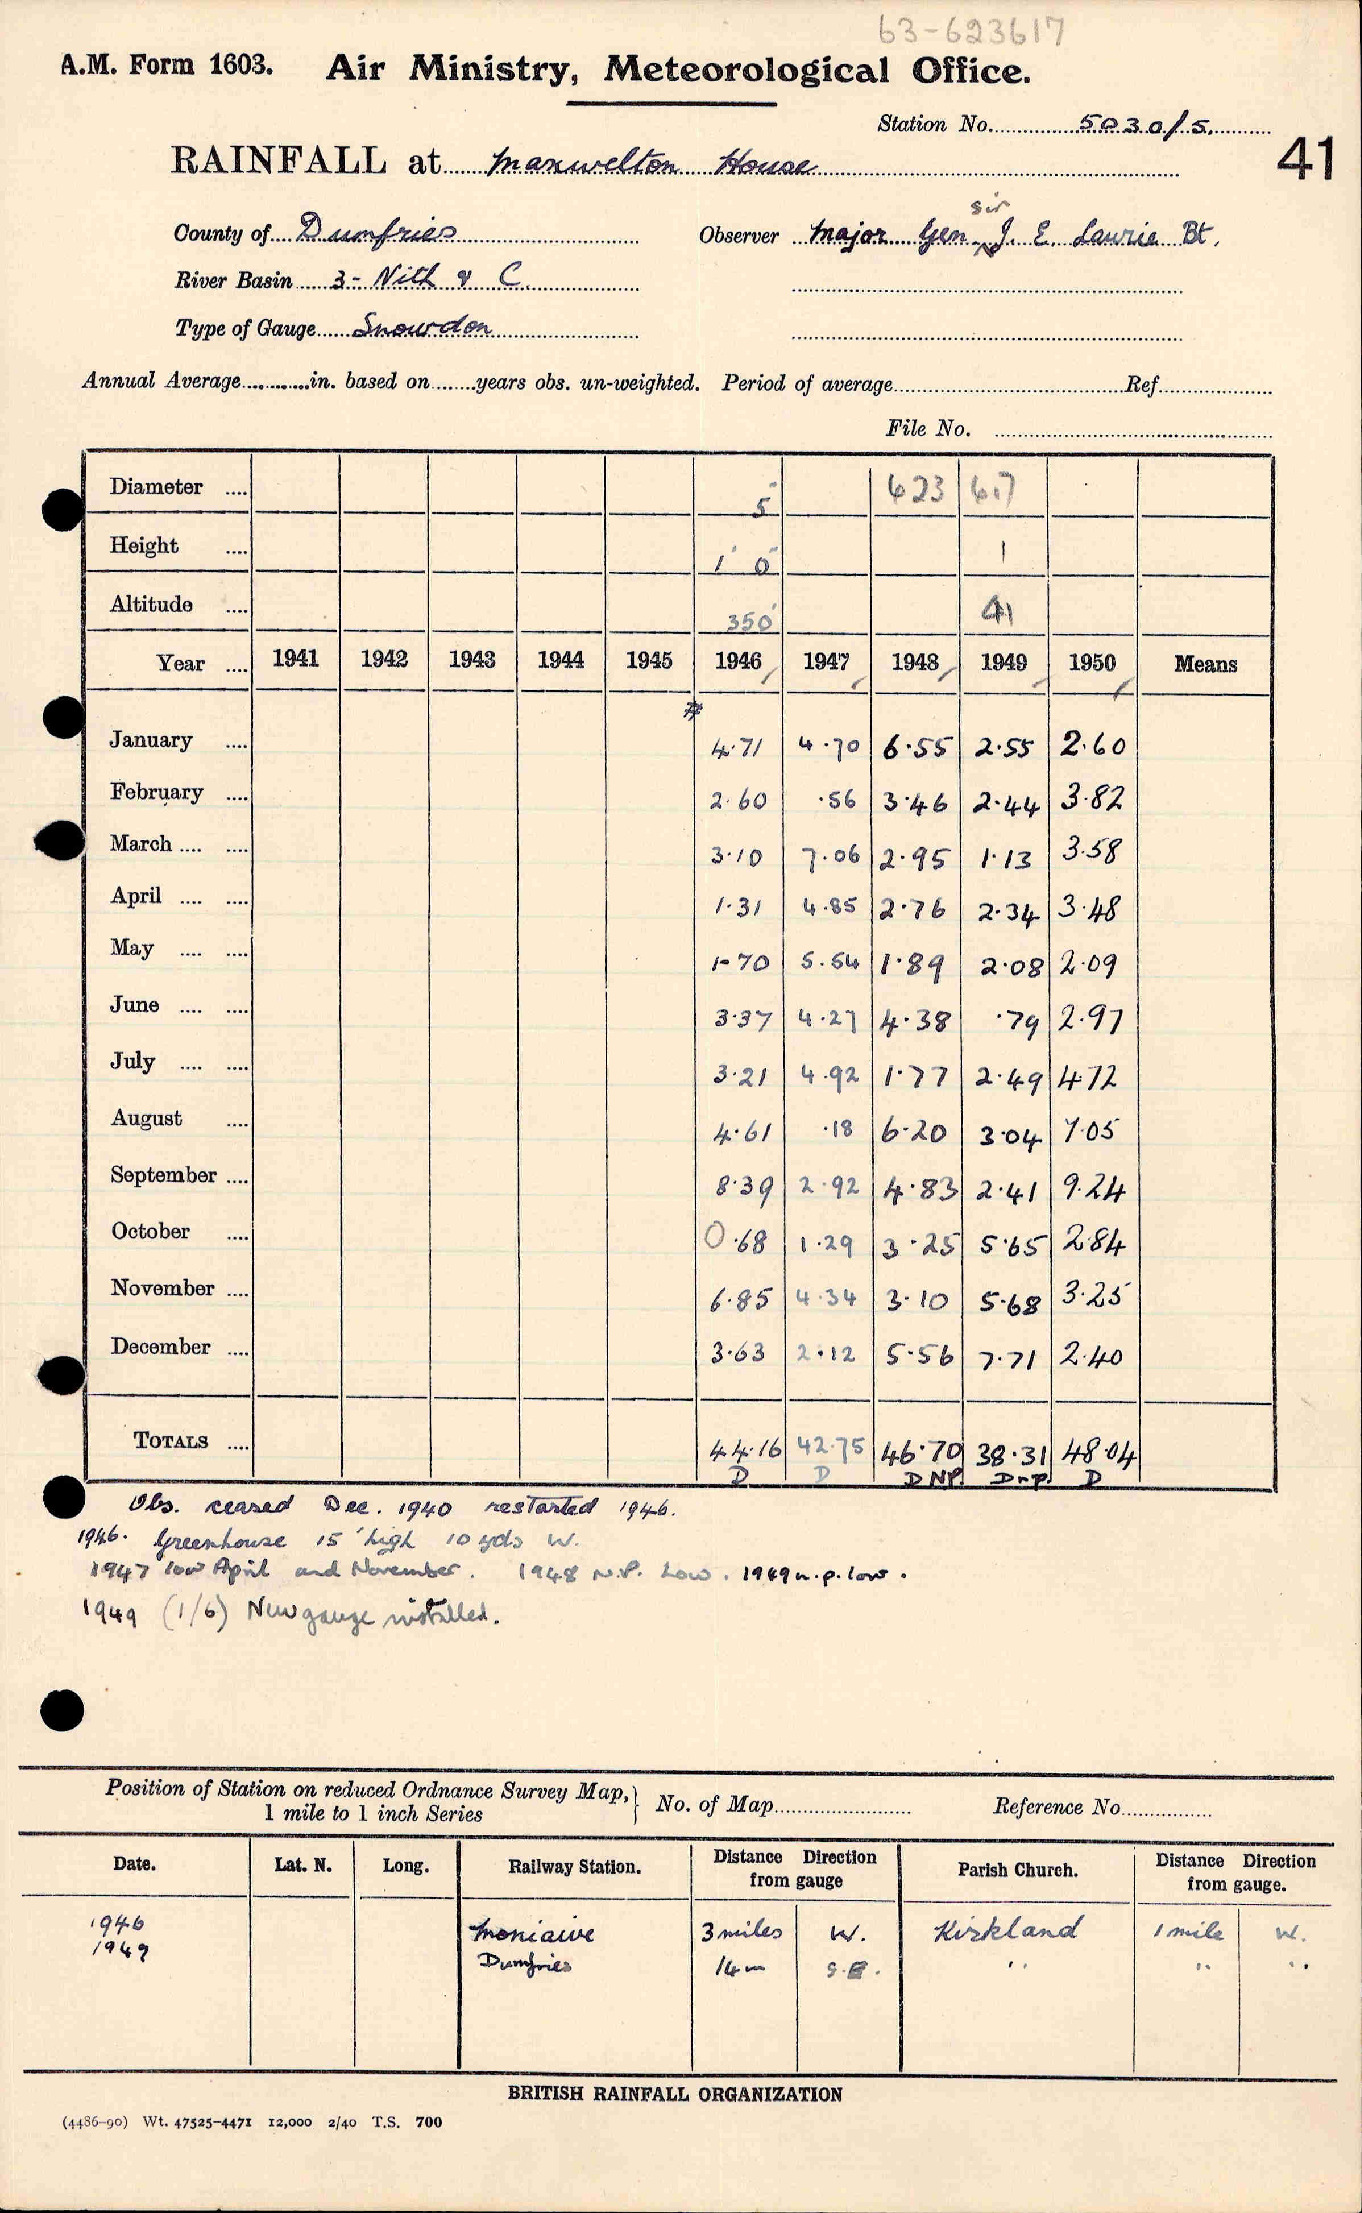 63-623617
A.M. Form 1603. Air Ministry, Meteorological Office.
Station No. 5030/5.
41
RAINFALL at Maxwelton House
County of Dumfries Observer Major Gen Sir J. E. Laurie Bt.
River Basin 3 - Nith & C.
Type of Gauge Snowdon
Annual Average in. based on years obs. un-weighted. Period of average Ref.
File No.
Diameter 5" 623 617
Height 1' 0" 1
Altitude 350' 41
Year 1941 1942 1943 1944 1945 1946 1947 1948 1949 1950 Means
January 4.71 4.70 6.55 2.55 2.60
February 2.60 .56 3.46 2.44 3.82
March 3.10 7.06 2.95 1.13 3.58
April 1.31 4.85 2.76 2.34 3.48
May 1.70 5.54 1.89 2.08 2.09
June 3.37 4.27 4.38 .79 2.97
July 3.21 4.92 1.77 2.49 4.72
August 4.61 .18 6.20 3.04 7.05
September 8.39 2.92 4.83 2.41 9.24
October 0.68 1.29 3.25 5.65 2.84
November 6.85 4.34 3.10 5.68 3.25
December 3.63 2.12 5.56 7.71 2.40
TOTALS 44.16 42.75 46.70 38.31 48.04
D D D NP. D n.p. D
Obs. ceased Dec. 1940 restarted 1946.
1946. Greenhouse 15' high 10 yds W.
1947 low April and November. 1948 N.P. Low. 1949 n.p. low.
1949 (1/6) New gauge installed.
Position of Station on reduced Ordnance Survey Map, 1 mile to 1 inch Series } No. of Map Reference No.
Date. Lat. N. Long. Railway Station. Distance Direction from gauge Parish Church. Distance Direction from gauge.
1946 Moniaive 3 miles W. Kirkland 1 mile W.
1949 Dumfries 14 m S.E. " " "
BRITISH RAINFALL ORGANIZATION
(4486-90) Wt. 47525-4471 12,000 2/40 T.S. 700